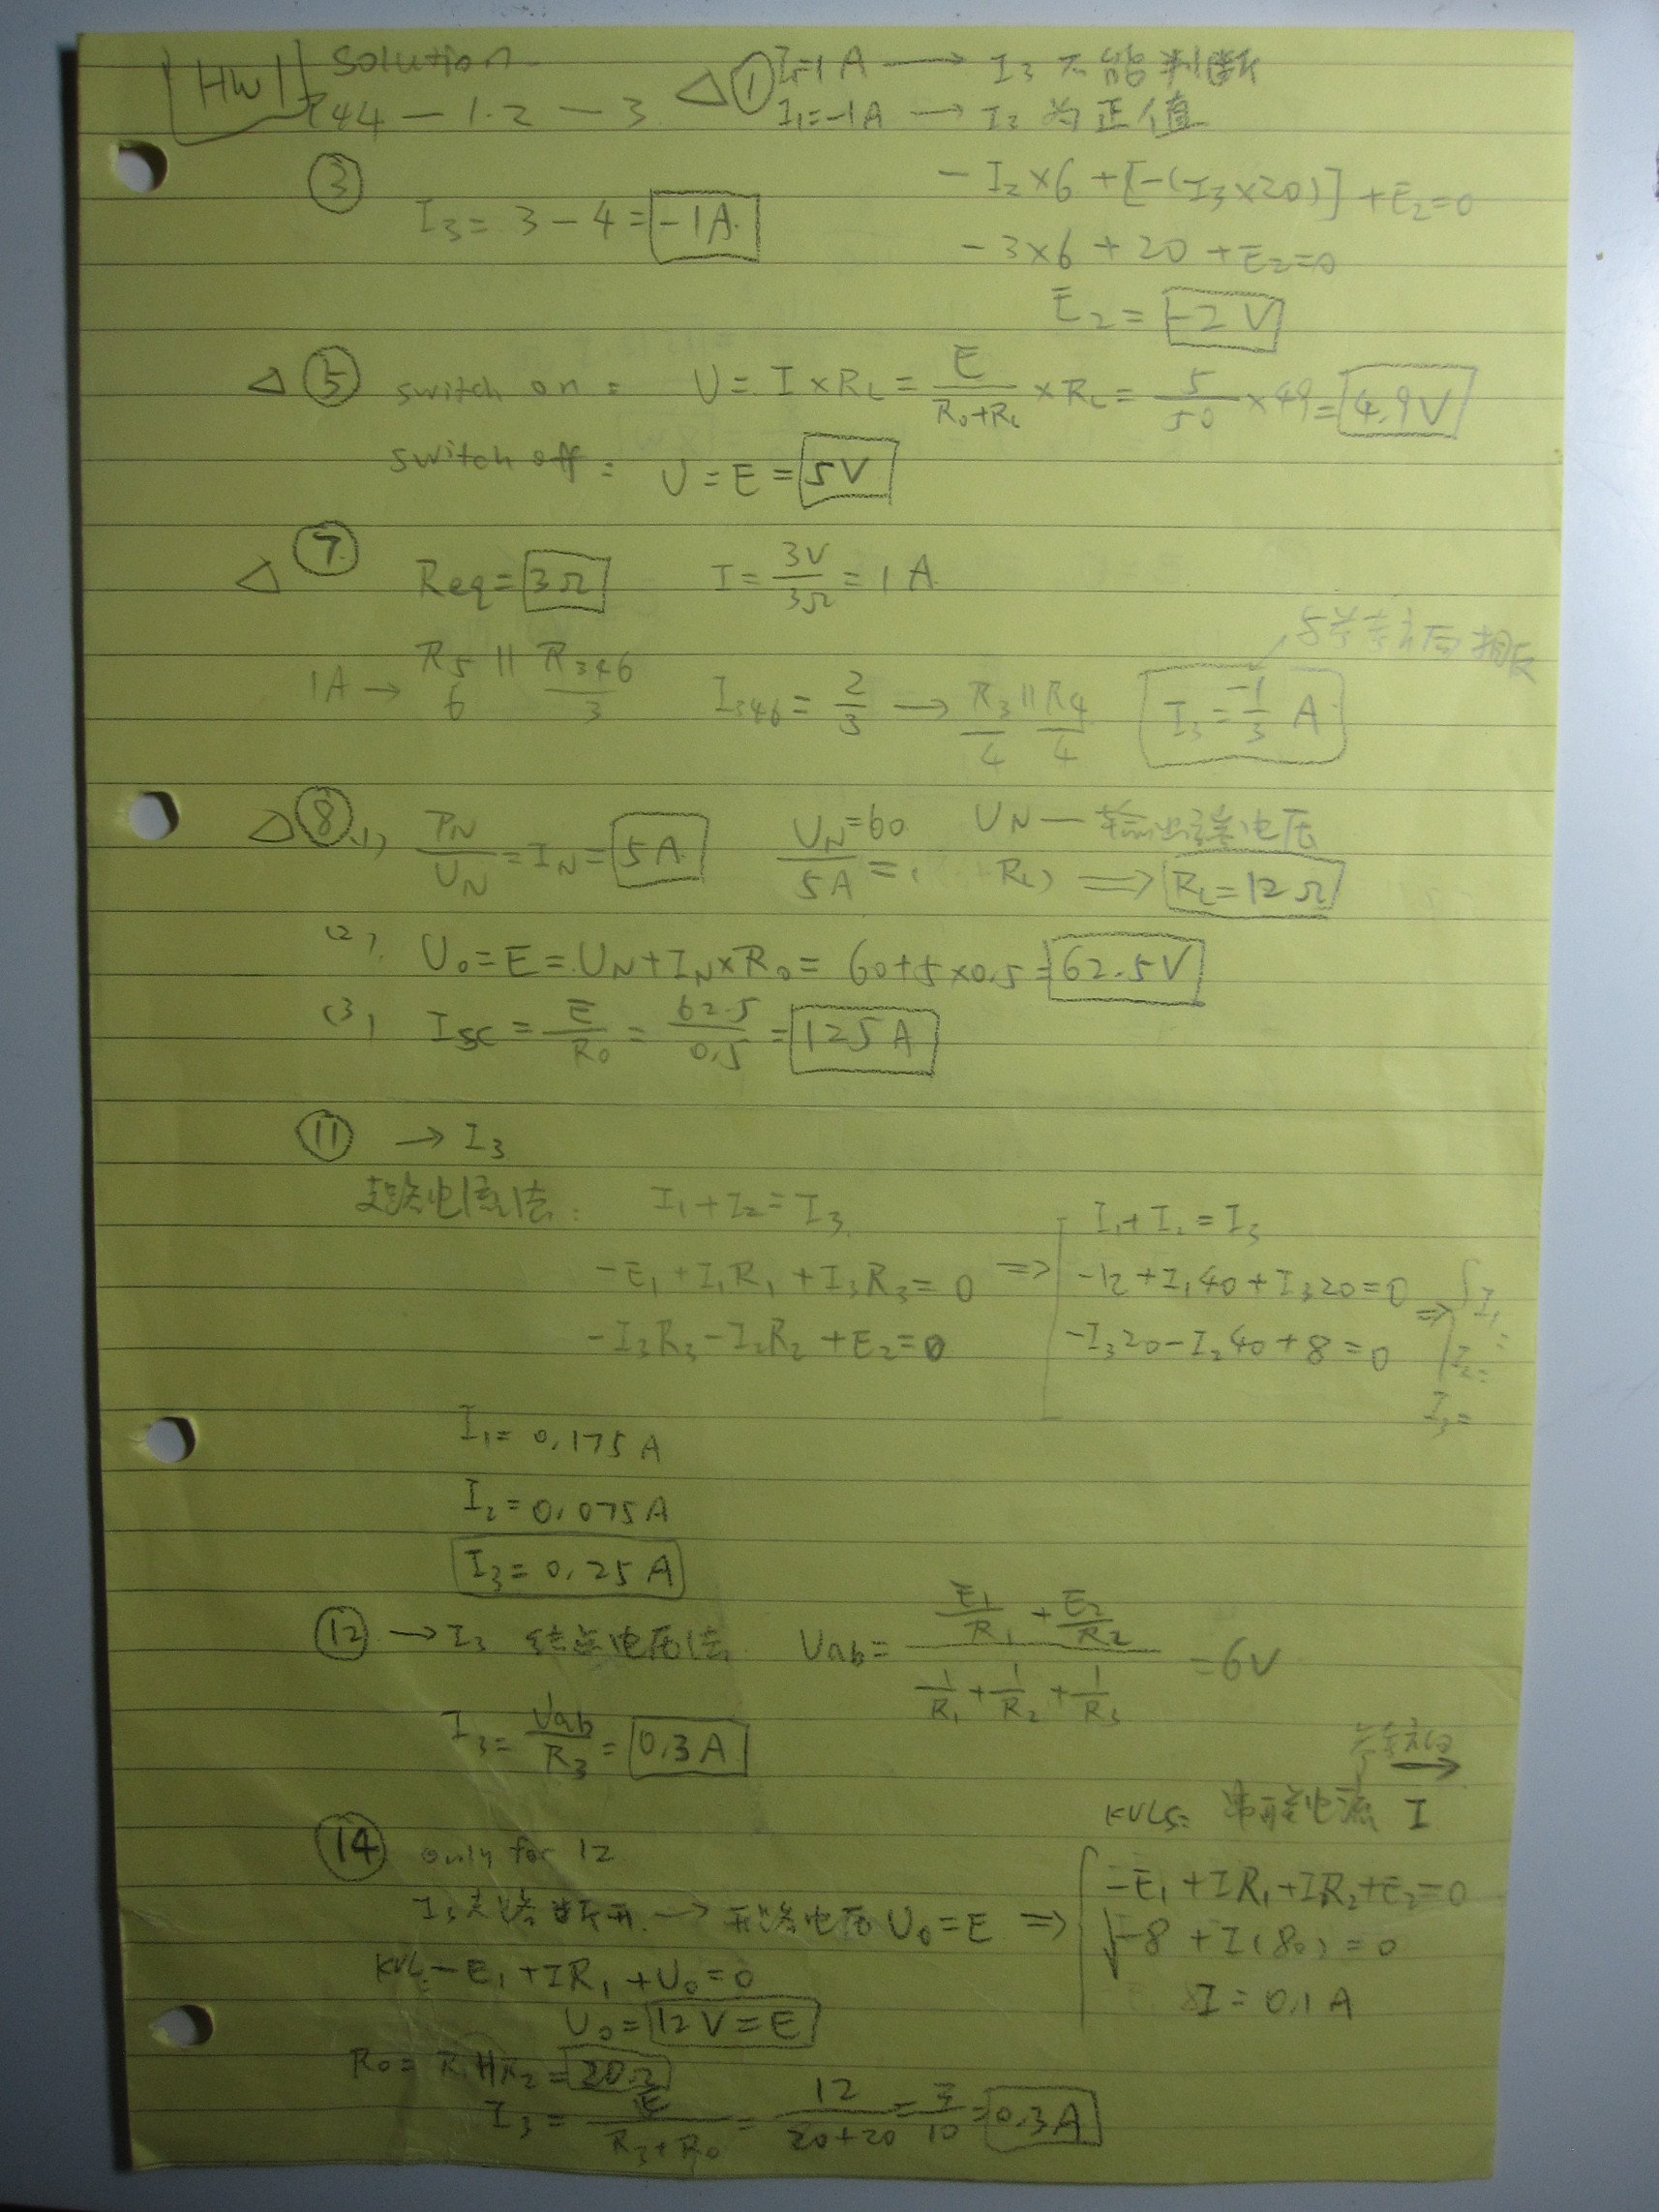 HW1 Solution
P44-1.2-3
△① I₁=1A → I₃ 不能判断
I₁=-1A → I₃ 为正值
③ I₃= 3-4= -1A
-I₂×6+[-(I₃×20)]+E₂=0
-3×6+20+E₂=0
E₂= -2V
△⑤ switch on: U= I×RL= E/(R₀+RL) ×RL= 5/50 ×49= 4.9V
switch off: U=E= 5V
△⑦ Req= 3Ω I= 3V/3Ω =1A
与参考方向相反
1A → R₅/6 || R₃₄₆/3 I₃₄₆= 2/3 → R₃/4 || R₄/4 I₃= -1/3 A
△⑧ (1) PN/UN =IN= 5A UN=60/5A = RL) UN—输出端电压 ⇒ RL=12Ω
(2) U₀=E=UN+IN×R₀= 60+5×0.5= 62.5V
(3) Isc= E/R₀ = 62.5/0.5 = 125A
⑪ → I₃
支路电流法: I₁+I₂=I₃
-E₁+I₁R₁+I₃R₃=0
-I₃R₃-I₂R₂+E₂=0
⇒ I₁+I₂=I₃
-12+I₁40+I₃20=0
-I₃20-I₂40+8=0
⇒ I₁
I₂=
I₃=
I₁=0.175A
I₂=0.075A
I₃=0.25A
⑫ → I₃ 结点电压法 Uab= (E₁/R₁ + E₂/R₂)/(1/R₁ + 1/R₂ + 1/R₃) =6V
I₃= Uab/R₃ = 0.3A
⑭ only for 12
I₃支路断开 → 开路电压U₀=E ⇒
参考方向 →
KVL: 电流 I
-E₁+IR₁+IR₂+E₂=0
-8+I(80)=0
I=0.1A
KVL: -E₁+IR₁+U₀=0
U₀= 12V=E
R₀= R₁||R₂= 20Ω
I₃= E/(R₃+R₀) = 12/(20+20) = 3/10 = 0.3A